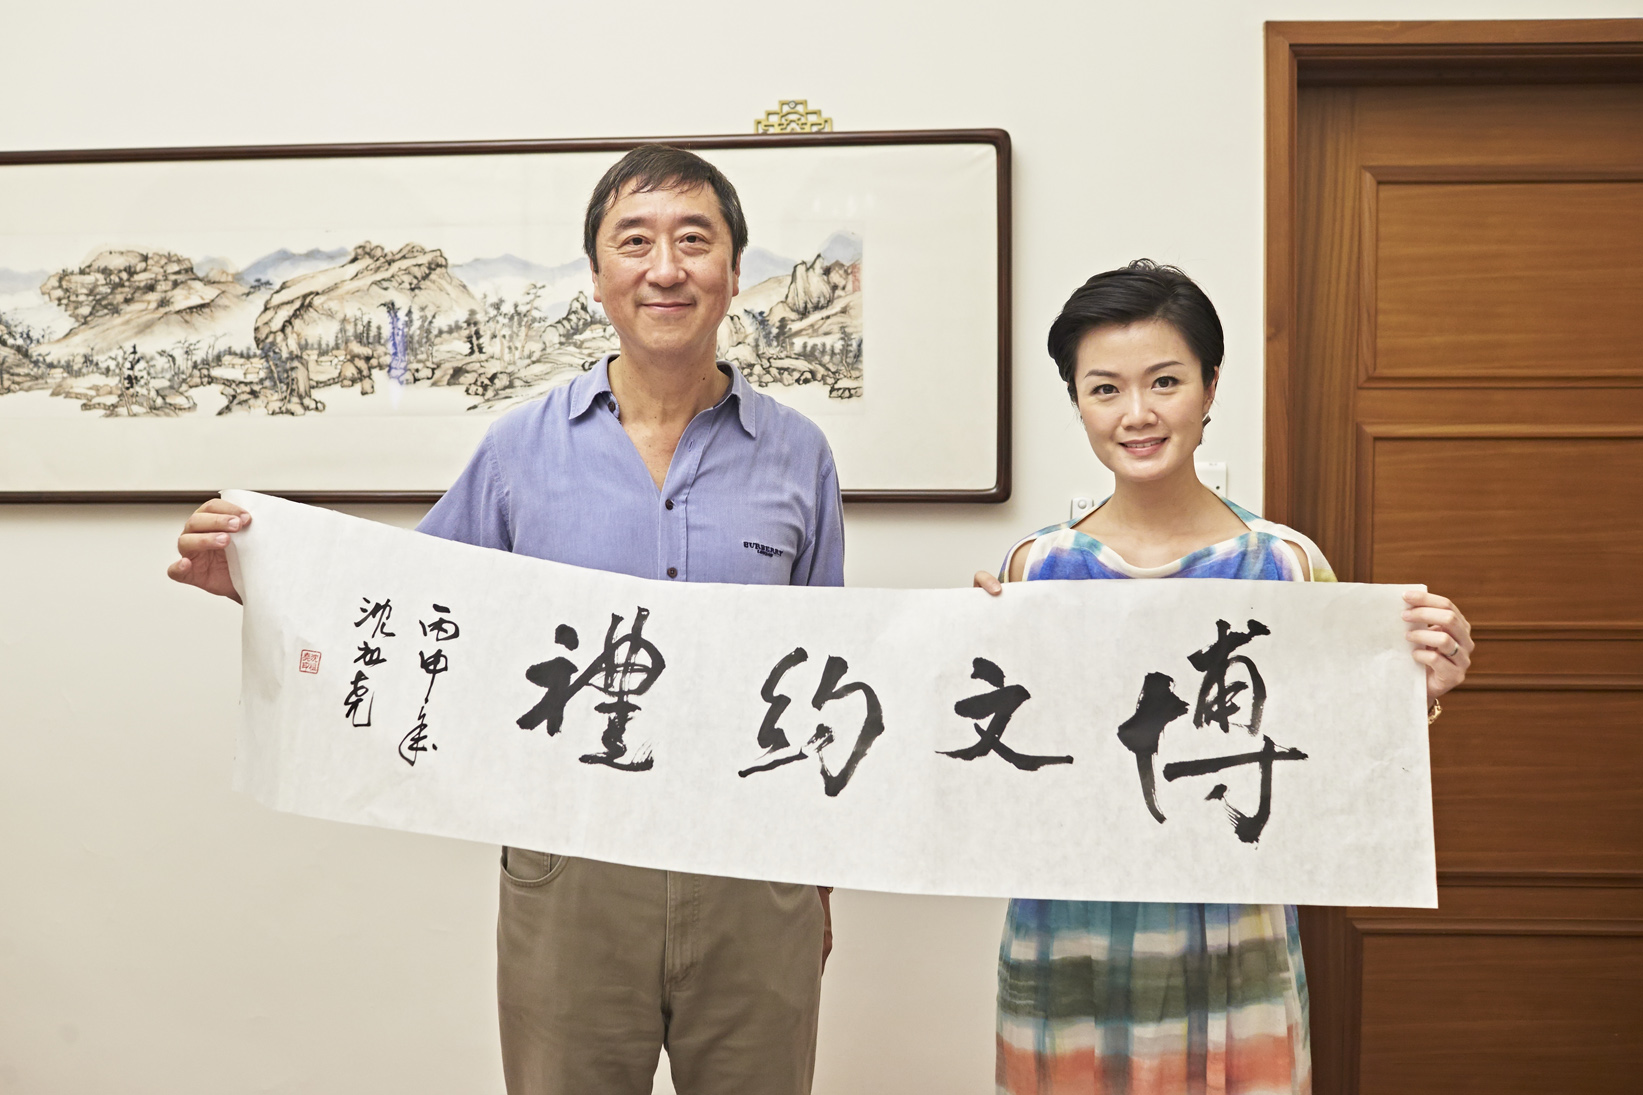 博文約禮
丙申年
沈祖堯
BURBERRY
LONDON